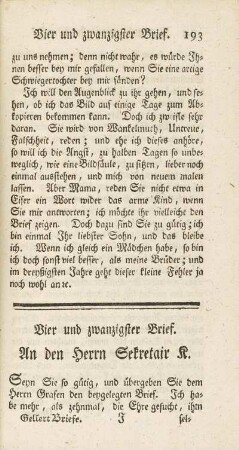 Vier und zwanzigster Brief. 193
zu uns nehmen; denn nicht wahr, es würde Ih-
nen besser bey mir gefallen, wenn Sie eine artige
Schwiegertochter bey mir fänden?
Ich will den Augenblick zu ihr gehen, und se-
hen, ob ich das Bild auf einige Tage zum Ab-
kopieren bekommen kann. Doch ich zweifle sehr
daran. Sie wird von Wankelmuth, Untreue,
Falschheit, reden; und ehe ich dieses anhöre,
so will ich die Angst, zu halben Tagen so unbe-
weglich, wie eine Bildsäule, zu sitzen, lieber noch
einmal ausstehen, und mich von neuem malen
lassen. Aber Mama, reden Sie nicht etwa in
Eifer ein Wort wider das arme Kind, wenn
Sie mir antworten; ich möchte ihr vielleicht den
Brief zeigen. Doch dazu sind Sie zu gütig; ich
bin einmal Ihr liebster Sohn, und das bleibe
ich. Wenn ich gleich ein Mädchen habe, so bin
ich doch sonst viel besser, als meine Brüder; und
im dreyßigsten Jahre geht dieser kleine Fehler ja
noch wohl an ꝛc.
Vier und zwanzigster Brief.
An den Herrn Sekretair K.
Seyn Sie so gütig, und übergeben Sie dem
Herrn Grafen den beygelegten Brief. Ich ha-
be mehr, als zehnmal, die Ehre gesucht, ihn
Gellert Briefe. J sel-